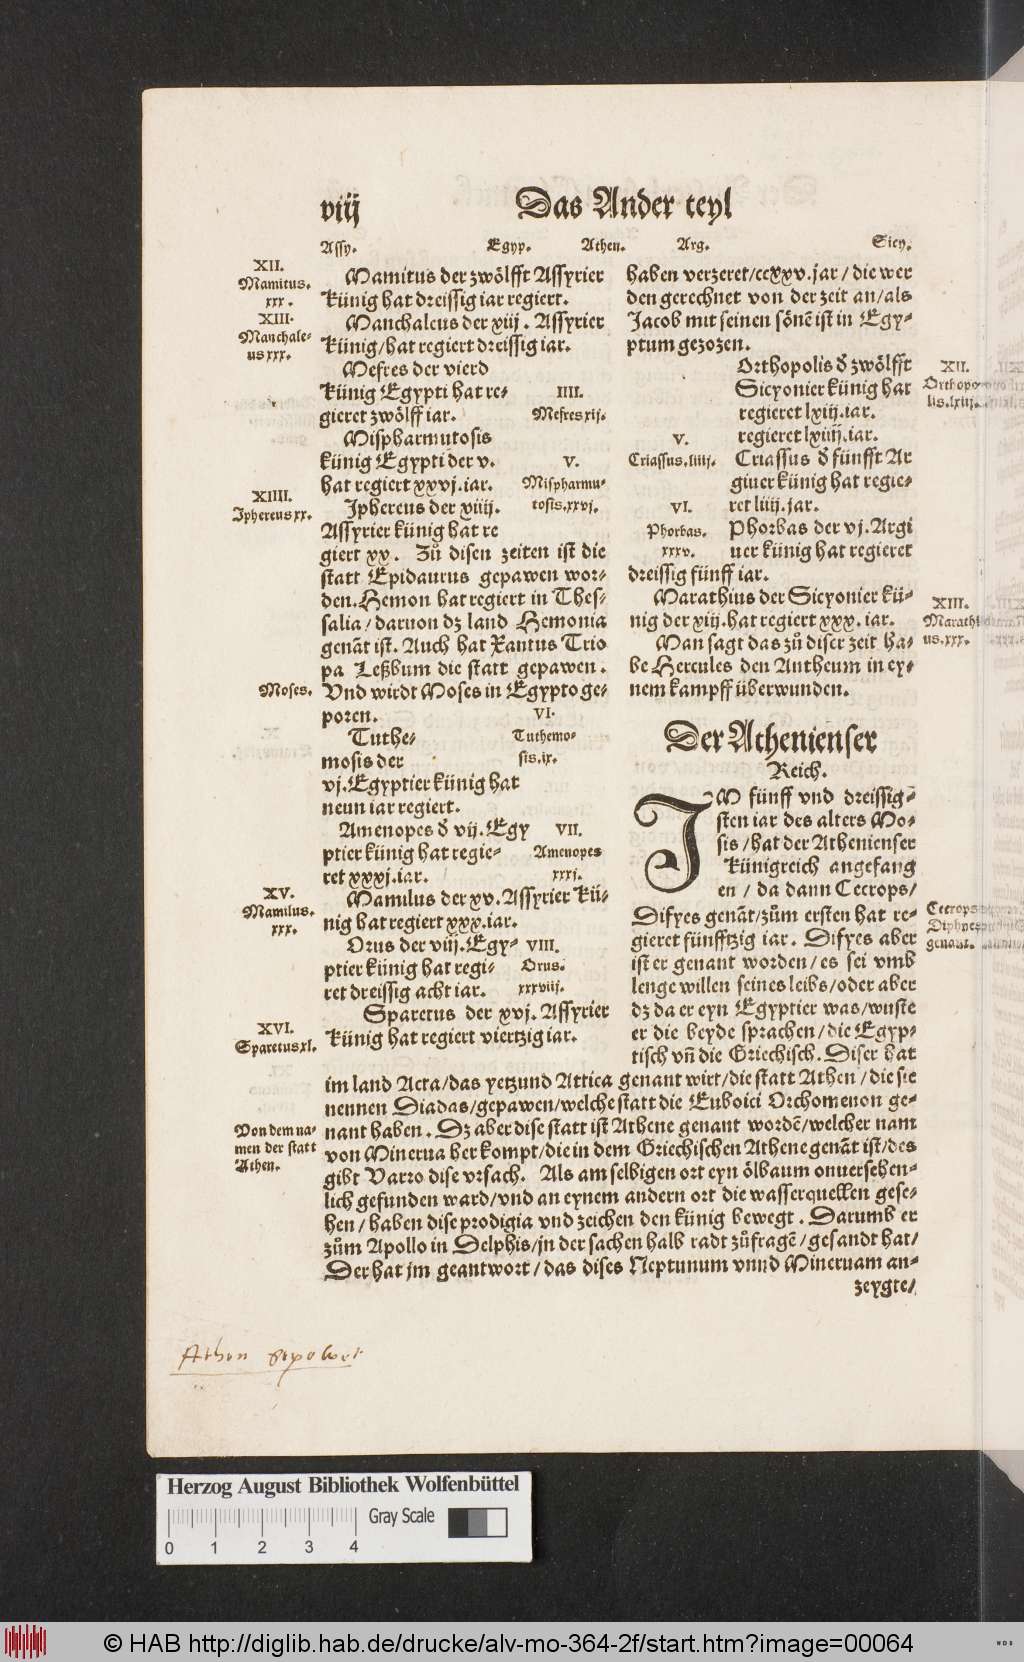 viij
Das Ander teyl
Assy.
Egyp.
Athen.
Arg.
Sicy.
XII.
Mamitus.
xxx.
XIII.
Manchale-
us xxx.
XIIII.
Jphereus xx.
Moses.
XV.
Mamilus.
xxx.
XVI.
Sparetus xl.
Von dem na-
men der statt
Athen.
Mamitus der zwölfft Assyrier
künig hat dreissig iar regiert.
Manchaleus der xiij. Assyrier
künig/hat regiert dreissig iar.
Mefres der vierd
künig Egypti hat re-
gieret zwölff iar.
Mispharmutosis
künig Egypti der v.
hat regiert xxvj.iar.
Jphereus der xiiij.
Assyrier künig hat re
giert xx. Zů disen zeiten ist die
statt Epidaurus gepawen wor-
den. Hemon hat regiert in Thes-
salia/daruon dz land Hemonia
genāt ist. Auch hat Xantus Trio
pa Leßbum die statt gepawen.
Vnd wirdt Moses in Egypto ge-
poren.
Tuthe-
mosis der
vj.Egyptier künig hat
neun iar regiert.
Amenopes d̄ vij.Egy
ptier künig hat regie-
ret xxxj.iar.
Mamilus der xv.Assyrier kü-
nig hat regiert xxx.iar.
Orus der viij.Egy-
ptier künig hat regi-
ret dreissig acht iar.
Sparetus der xvj.Assyrier
künig hat regiert viertzig iar.
IIII.
Mefres xij.
V.
Mispharmu-
tosis.xxvj.
VI.
Tuthemo-
sis.ix.
VII.
Amenopes
xxxj.
VIII.
Orus.
xxxviij.
haben verzeret/ccxxv.jar/die wer
den gerechnet von der zeit an/als
Jacob mit seinen sönē ist in Egy-
ptum gezozen.
Orthopolis d̄ zwölfft
Sicyonier künig hat
regieret lxiij.iar.
regieret lxiiij.iar.
Criassus d̄ fünfft Ar
giuer künig hat regie-
ret liiij.jar.
Phorbas der vj.Argi
uer künig hat regieret
dreissig fünff iar.
Marathius der Sicyonier kü-
nig der xiij.hat regiert xxx.iar.
Man sagt das zů diser zeit ha-
be Hercules den Antheum in ey-
nem kampff überwunden.
V.
Criassus.liiij.
VI.
Phorbas.
xxxv.
XII.
Orthopo
lis.lxiij.
XIII.
Marathi
us.xxx.
Der Athenienser
Reich.
JM fünff vnd dreissig-
sten iar des alters Mo-
sis/hat der Athenienser
künigreich angefang
en/da dann Cecrops/
Difyes genāt/zům ersten hat re-
gieret fünfftzig iar. Difyes aber
ist er genant worden/es sei vmb
lenge willen seines leibs/oder aber
dz da er eyn Egyptier was/wuste
er die beyde sprachen/die Egyp-
tisch vn̄ die Griechisch. Diser hat
Cecrops
Diphyes
genant.
im land Acta/das yetzund Attica genant wirt/die statt Athen/die sie
nennen Diadas/gepawen/welche statt die Euboici Orchomenon ge-
nant haben. Dz aber dise statt ist Athene genant wordē/welcher nam
von Minerua her kompt/die in dem Griechischen Athene genāt ist/des
gibt Varro dise vrsach. Als am selbigen ort eyn ölbaum onuersehen-
lich gefunden ward/vnd an eynem andern ort die wasserquellen gese-
hen/haben dise prodigia vnd zeichen den künig bewegt. Darumb er
zům Apollo in Delphis/jn der sachen halb radt zůfragē/gesandt hat/
Der hat jm geantwort/das dises Neptunum vnnd Mineruam an-
zeygte/
Athen gepawet
Herzog August Bibliothek Wolfenbüttel
Gray Scale
0 1 2 3 4
© HAB http://diglib.hab.de/drucke/alv-mo-364-2f/start.htm?image=00064